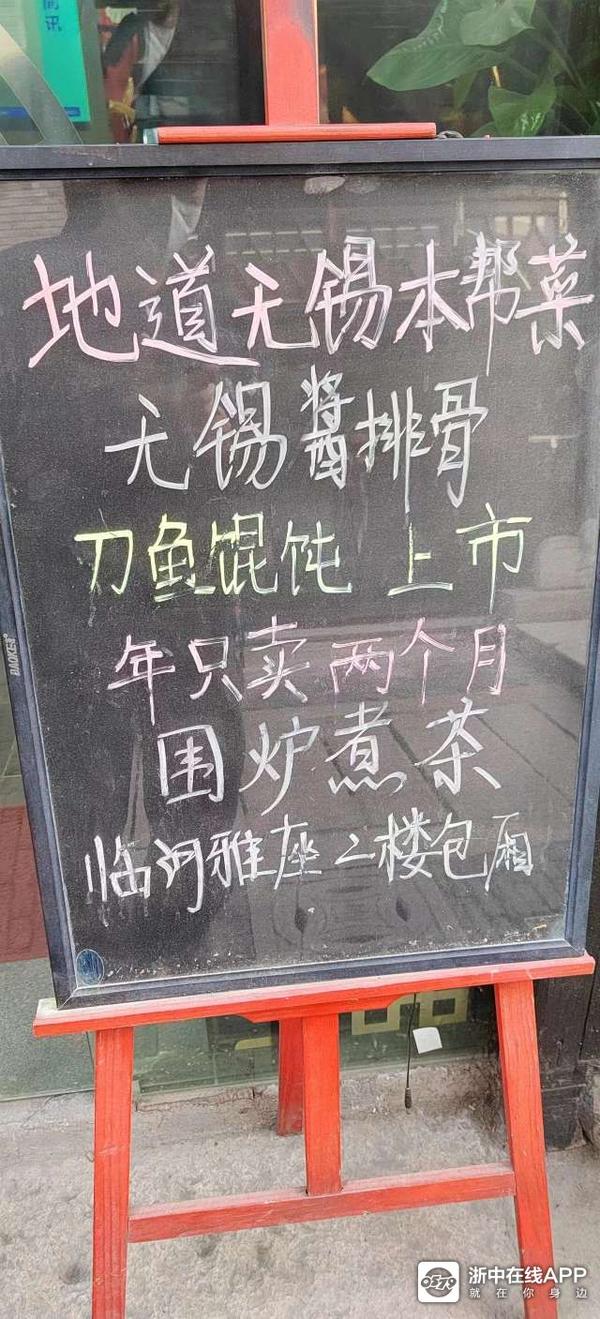 简讯
地道无锡本帮菜
无锡醬排骨
刀鱼馄饨 上市
年只卖两个月
围炉煮茶
临河雅座二楼包厢
BAOKE
0579 浙中在线APP
就在你身边